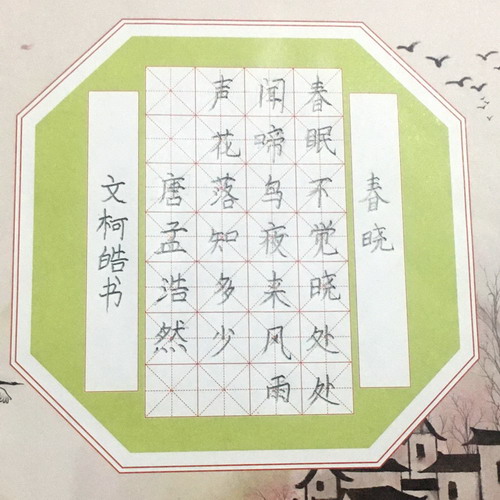 春晓
春眠不觉晓处处
闻啼鸟夜来风雨
声花落知多少
唐孟浩然
文柯皓书